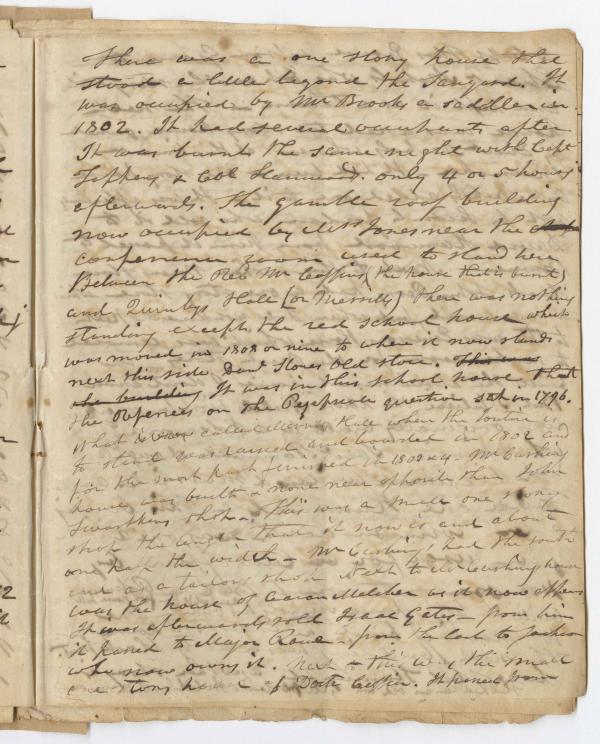 There was a one story house that
stood a little beyond the Tanyard. It
was occupied by Mr Brooks a saddler in
1802. It had several occupants after
It was burnt the same night with Capt
& Col only 4 or 5 hours
afterwards. The gamble roof building
now occupied by Miss Jones near the
conference room used to stand here
Between the Rev Mr Coffins (the house that is burnt)
and Quinbys Hall (or Merrills) there was nothing
standing except the red school house which
was moved in 1808 or nine to where it now stands
next this side Danl Stones Old store. This was
the building It was in this school house that
the Referees on the Pejepscot question sat in 1796.
What is now called Hall when the
to was raised and boarded in 1802 and
for the most part finished in 1803 & 4 - Mr Cushing
house was built & none near opposite then John
shop - This was a small one story
shop the length that it now is and about
one half the width - Mr Cushing had the south
end as a tailors shop Next to Mr Cushings house
was the house of Aaron Melcher as it now appears
It was afterwards sold Isaac Gates - from him
it passed to Major Rowe - from the last to Jackson
who now owns it. Next - this way the small
one story house of Doctr Coffin. It passed from